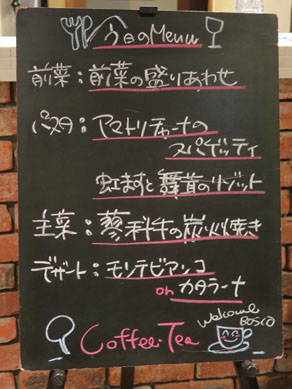 今日のMenu
前菜：前菜の盛りあわせ
パスタ：アマトリチャーナの
スパゲッティ
虹ますと舞茸のリゾット
主菜：蓼科牛の炭火焼き
デザート：モンテビアンコ
on カタラーナ
welcome
BOSCO
Coffee・Tea